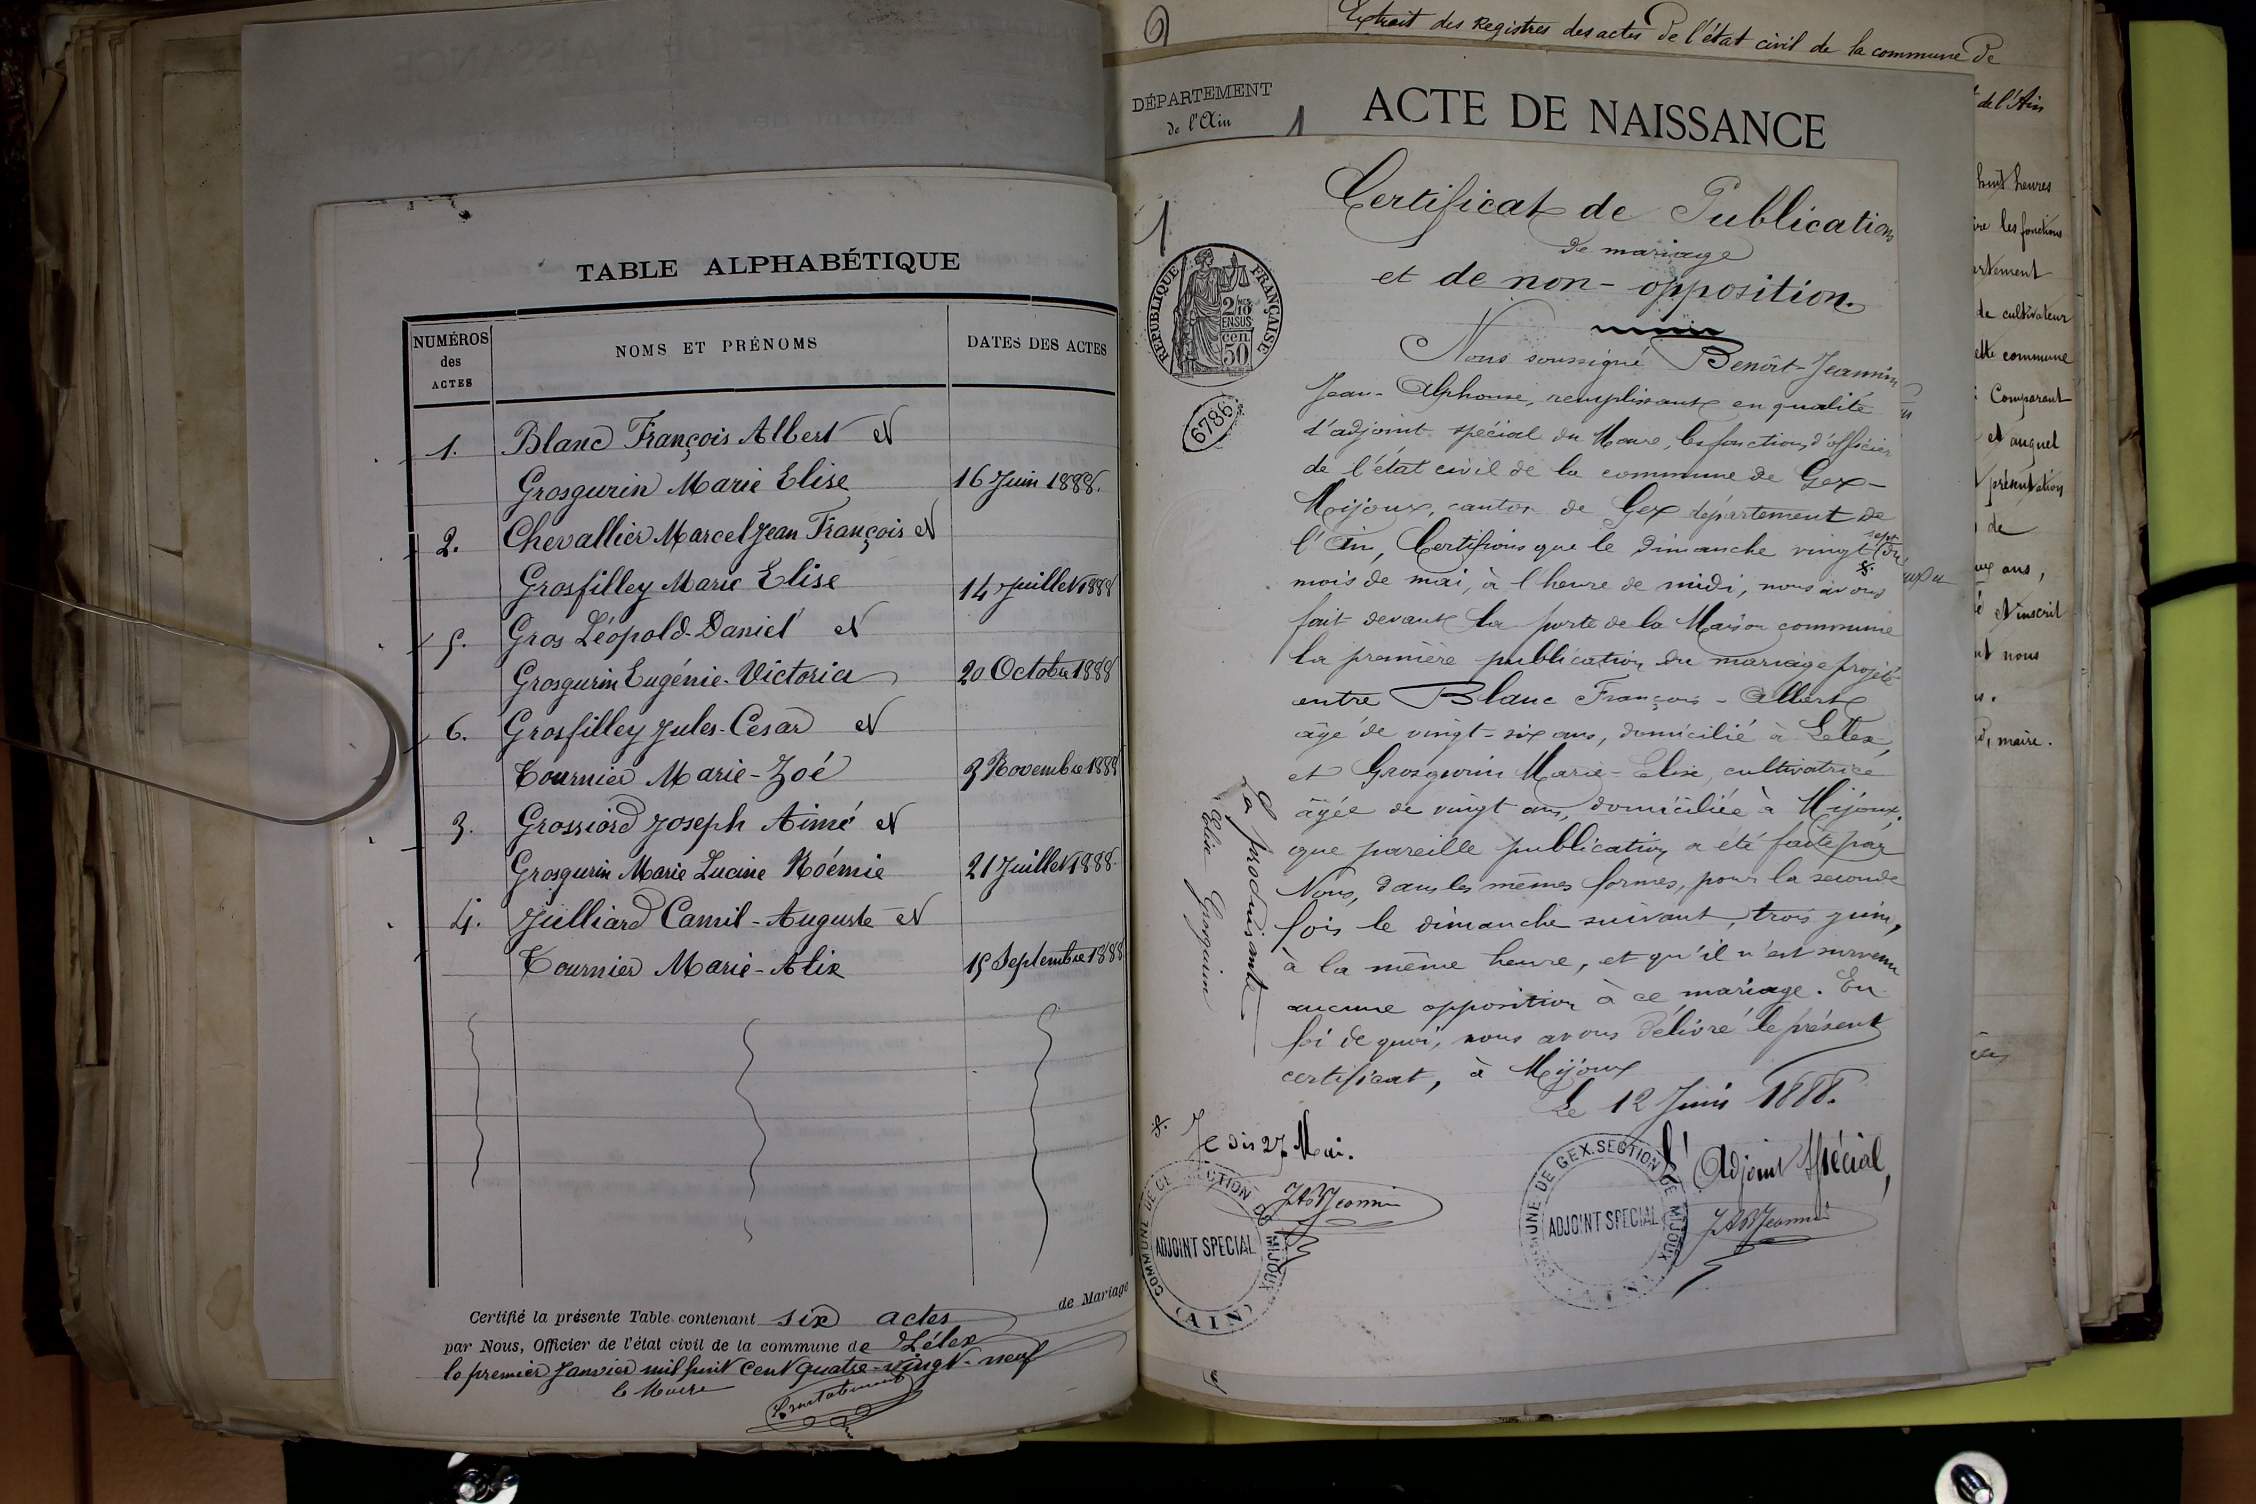 TABLE ALPHABÉTIQUE
NUMÉROS des ACTES
NOMS ET PRÉNOMS
DATES DES ACTES
1. Blanc François Albert et
Grosgurin Marie Elise 16 Juin 1888.
2. Chevallier Marcel Jean François et
Grosfilley Marie Elise 14 Juillet 1888
5. Gros Léopold-Daniel et
Grosgurin Eugénie-Victoria 20 Octobre 1888
6. Grosfilley Jules-Cesar et
Tournier Marie-Zoé 3 Novembre 1888
3. Grossiord Joseph Aimé et
Grosgurin Marie Lucine Noémie 21 Juillet 1888
4. Julliard Camil-Auguste et
Tournier Marie-Alix 15 Septembre 1888
de Mariage
Certifié la présente Table contenant six actes
par Nous, Officier de l'état civil de la commune de Lélex
le premier Janvier mil huit cent quatre-vingt-neuf
le Maire
Extrait des Registres des actes de l'état civil de la commune de
DÉPARTEMENT
de l'Ain
1
ACTE DE NAISSANCE
1
Certificat de Publications
de mariage
et de non-opposition.
RÉPUBLIQUE FRANÇAISE
2/10 EN SUS
50 cen
6786
Nous soussigné Benoît-Jeannin
Jean-Alphonse, remplissant en qualité
d'adjoint spécial du Maire, les fonctions d'officier
de l'état civil de la commune de Gex-
Mijoux, canton de Gex département de
l'Ain, Certifions que le dimanche vingt sept du
mois de mai, à l'heure de midi, nous avons
fait devant la porte de la Maison commune
la première publication du mariage projeté
entre Blanc François-Albert
âgé de vingt-six ans, domicilié à Lélex,
et Grosgurin Marie-Elise, cultivatrice
âgée de vingt ans, domiciliée à Mijoux,
que pareille publication a été faite par
Nous, dans les mêmes formes, pour la seconde
fois le dimanche suivant, trois juin,
à la même heure, et qu'il n'est survenu
aucune opposition à ce mariage. En
foi de quoi, nous avons délivré le présent
certificat, à Mijoux
Le 12 Juin 1888.
L'Adjoint Spécial,
JABJeannin
COMMUNE DE GEX. SECTION DE MIJOUX
ADJOINT SPECIAL
(AIN)
La produisante
Elise Grosgurin
Je dis 27 Mai.
JABJeannin
COMMUNE DE GEX SECTION DE MIJOUX
ADJOINT SPECIAL
(AIN)
de l'Ain
huit heures
les fonctions
de cultivateur
commune
Comparant
et auquel
présentation
de
ans,
et inscrit
nous
maire.